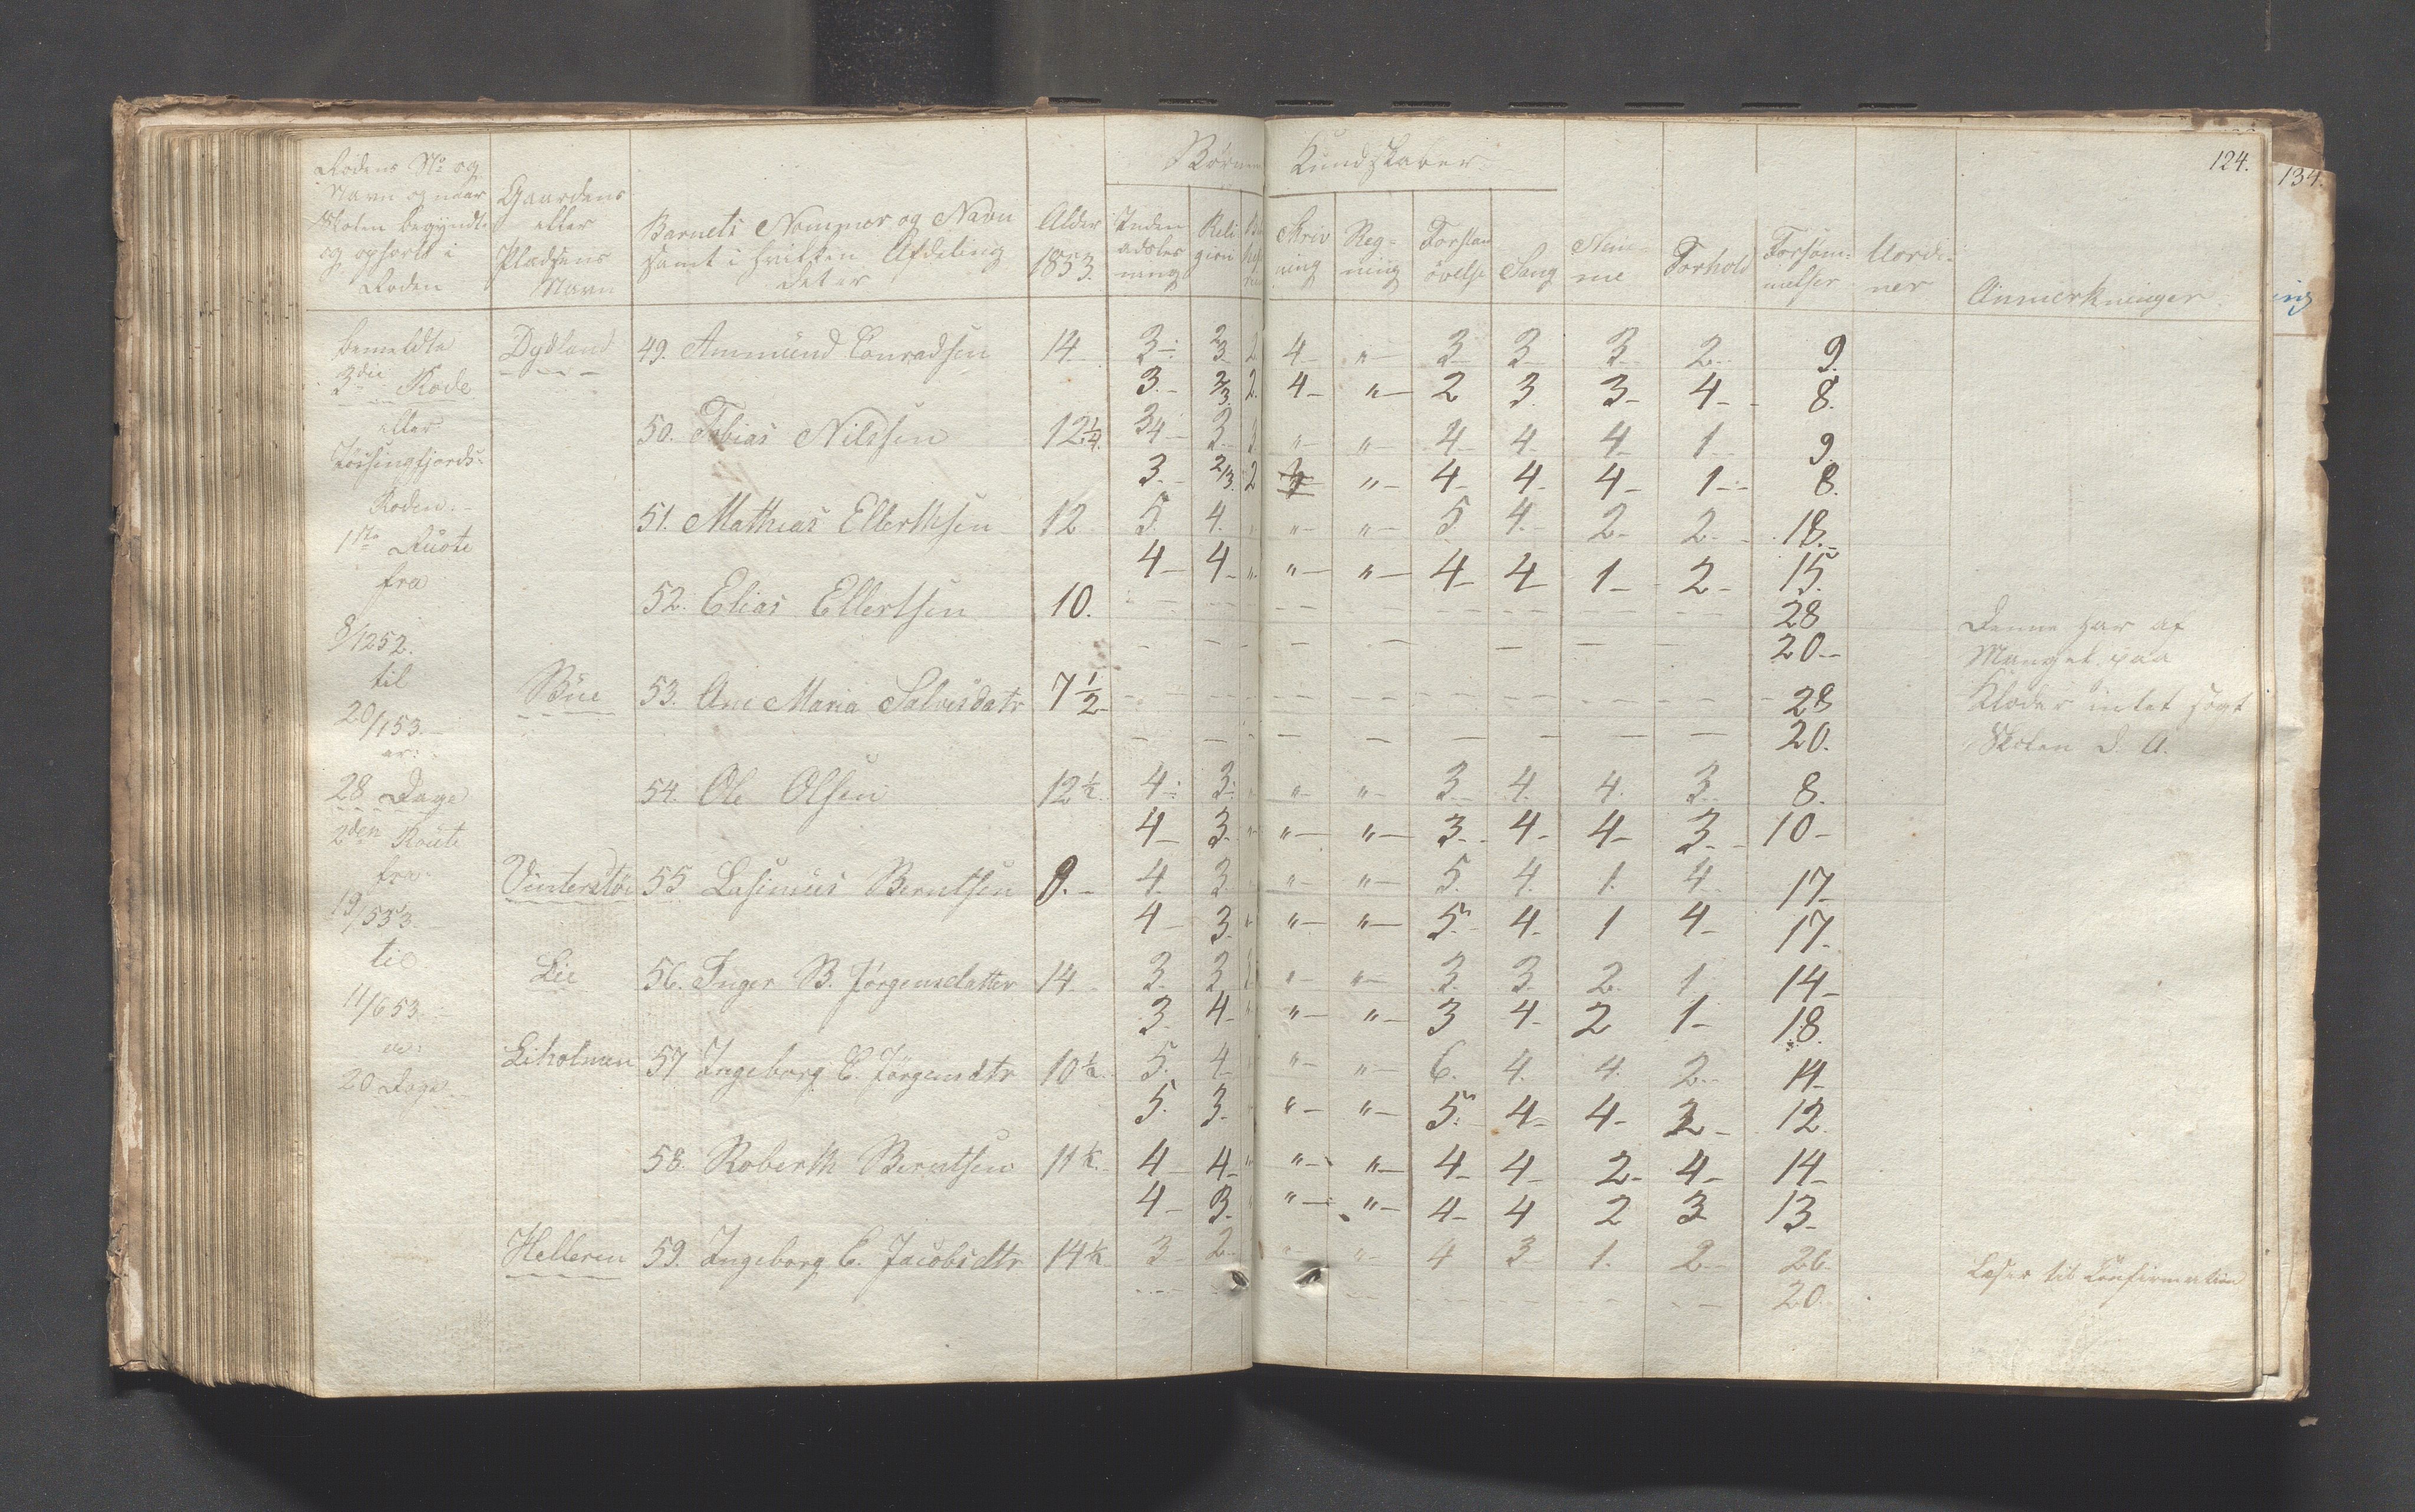 124.
134.
Børne Kundskaber
Rodens No og
Navn og naar
Skolen begyndte
og ophørte i
Roden
Gaardens
eller
Pladsens
Navn
Barnets Nommer og Navn
samt i hvilken Afdeling
det er
Alder
1853.
Inden
adsles
ning
Reli
gion
Skriv
ning
Reg-
ning
Forstan
øvelse
Sang
Nem-
me
Forhold
Forsøm-
melser
Uordi-
ner
Anmerkninger
bemeldte
3die Rode
eller
Jøssingfjords-
Roden.
1ste Ruote
fra
8/12 52.
til
20/1 53.
er:
28 Dage
2den Route
fra
19/5 53.
til
11/6 53.
er:
20 Dage
Dydland 49. Ammund Conradsen 14 3 2/3 2 4 " 3 3 3 2 9.
3. 2/3 2. 4 " 2 3 3 4 8.
50. Tobias Nilssen 12 1/4. 3/4 3 " " 4 4 4 1 9
3. 2/3. 2 " 4 4 4 1 8.
51. Mathias Ellerthsen 12 5. 4. " " 5 4 2 2 18.
4 4 " " " 4 4 1 2 15.
52. Elias Ellertsen 10. 28 Denne har af
20 Mangel paa
Büe 53. Ane Maria Salvesdatr 7 1/2 28 Klæder intet søgt
20. Skolen d. A.
54. Ole Olsen 12 1/2. 4 3 " " 3 4. 4. 3 8.
4 3 " " " 3 4 4 3 10
Vinterstøe 55 Lasimus Berntsen 9. 4. 3 " " 5. 4. 1. 4 17
4 3 " " " 5 4 1 4 17
Lie 56. Inger B. Jørgensdatter 14 3. 3 " " 3. 3. 2. 1. 14
3 4 " " " 3 4 2 1 18.
Liholmen 57 Ingeborg C. Jörgensdtr 10 1/2 5. 4 " " 6. 4. 4. 2. 14
5. 3 " " 5. 4 4 2 12
58. Roberth Berntsen 11 1/2. 4 4 " " " 4 4 2 4 14
4 3. " " 4 4 2 3 13
Helleren 59. Ingeborg C. Jacobsdtr 14 1/2 3 2 " " 4 3 1. 2 26 Læser til Confirmation
20.